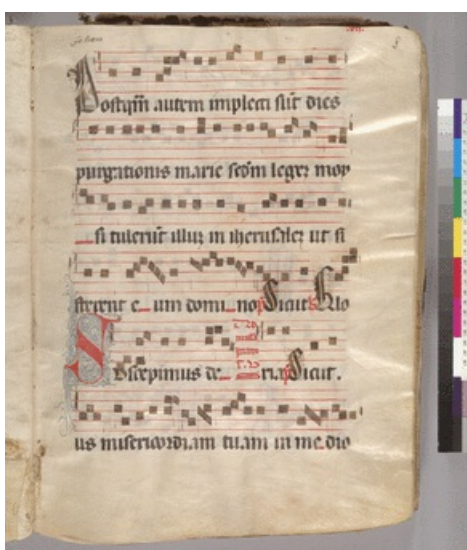 Postq̄m autem impleti sūt dies
purgationis marie scd̄m legeꝫ moy
si tulerūt illuꝫ in iherusaleꝫ ut si
sterent e um domi no Sicut Glo
Suscepimus de ria Sicut.
us misericordiam tuam in me dio